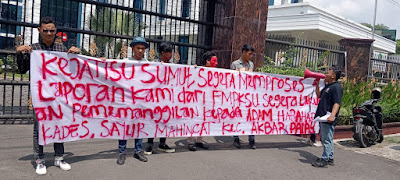 KEJATISU SUMUT SEGERA MEMPROSES
LAPORAN KAMI DARI FMPKSU SEGERA LAKUK
AN PEMEMANGGILAN KEPADA ADAM HARAHAP
KADES, SATUR MAHINCAT KEC,